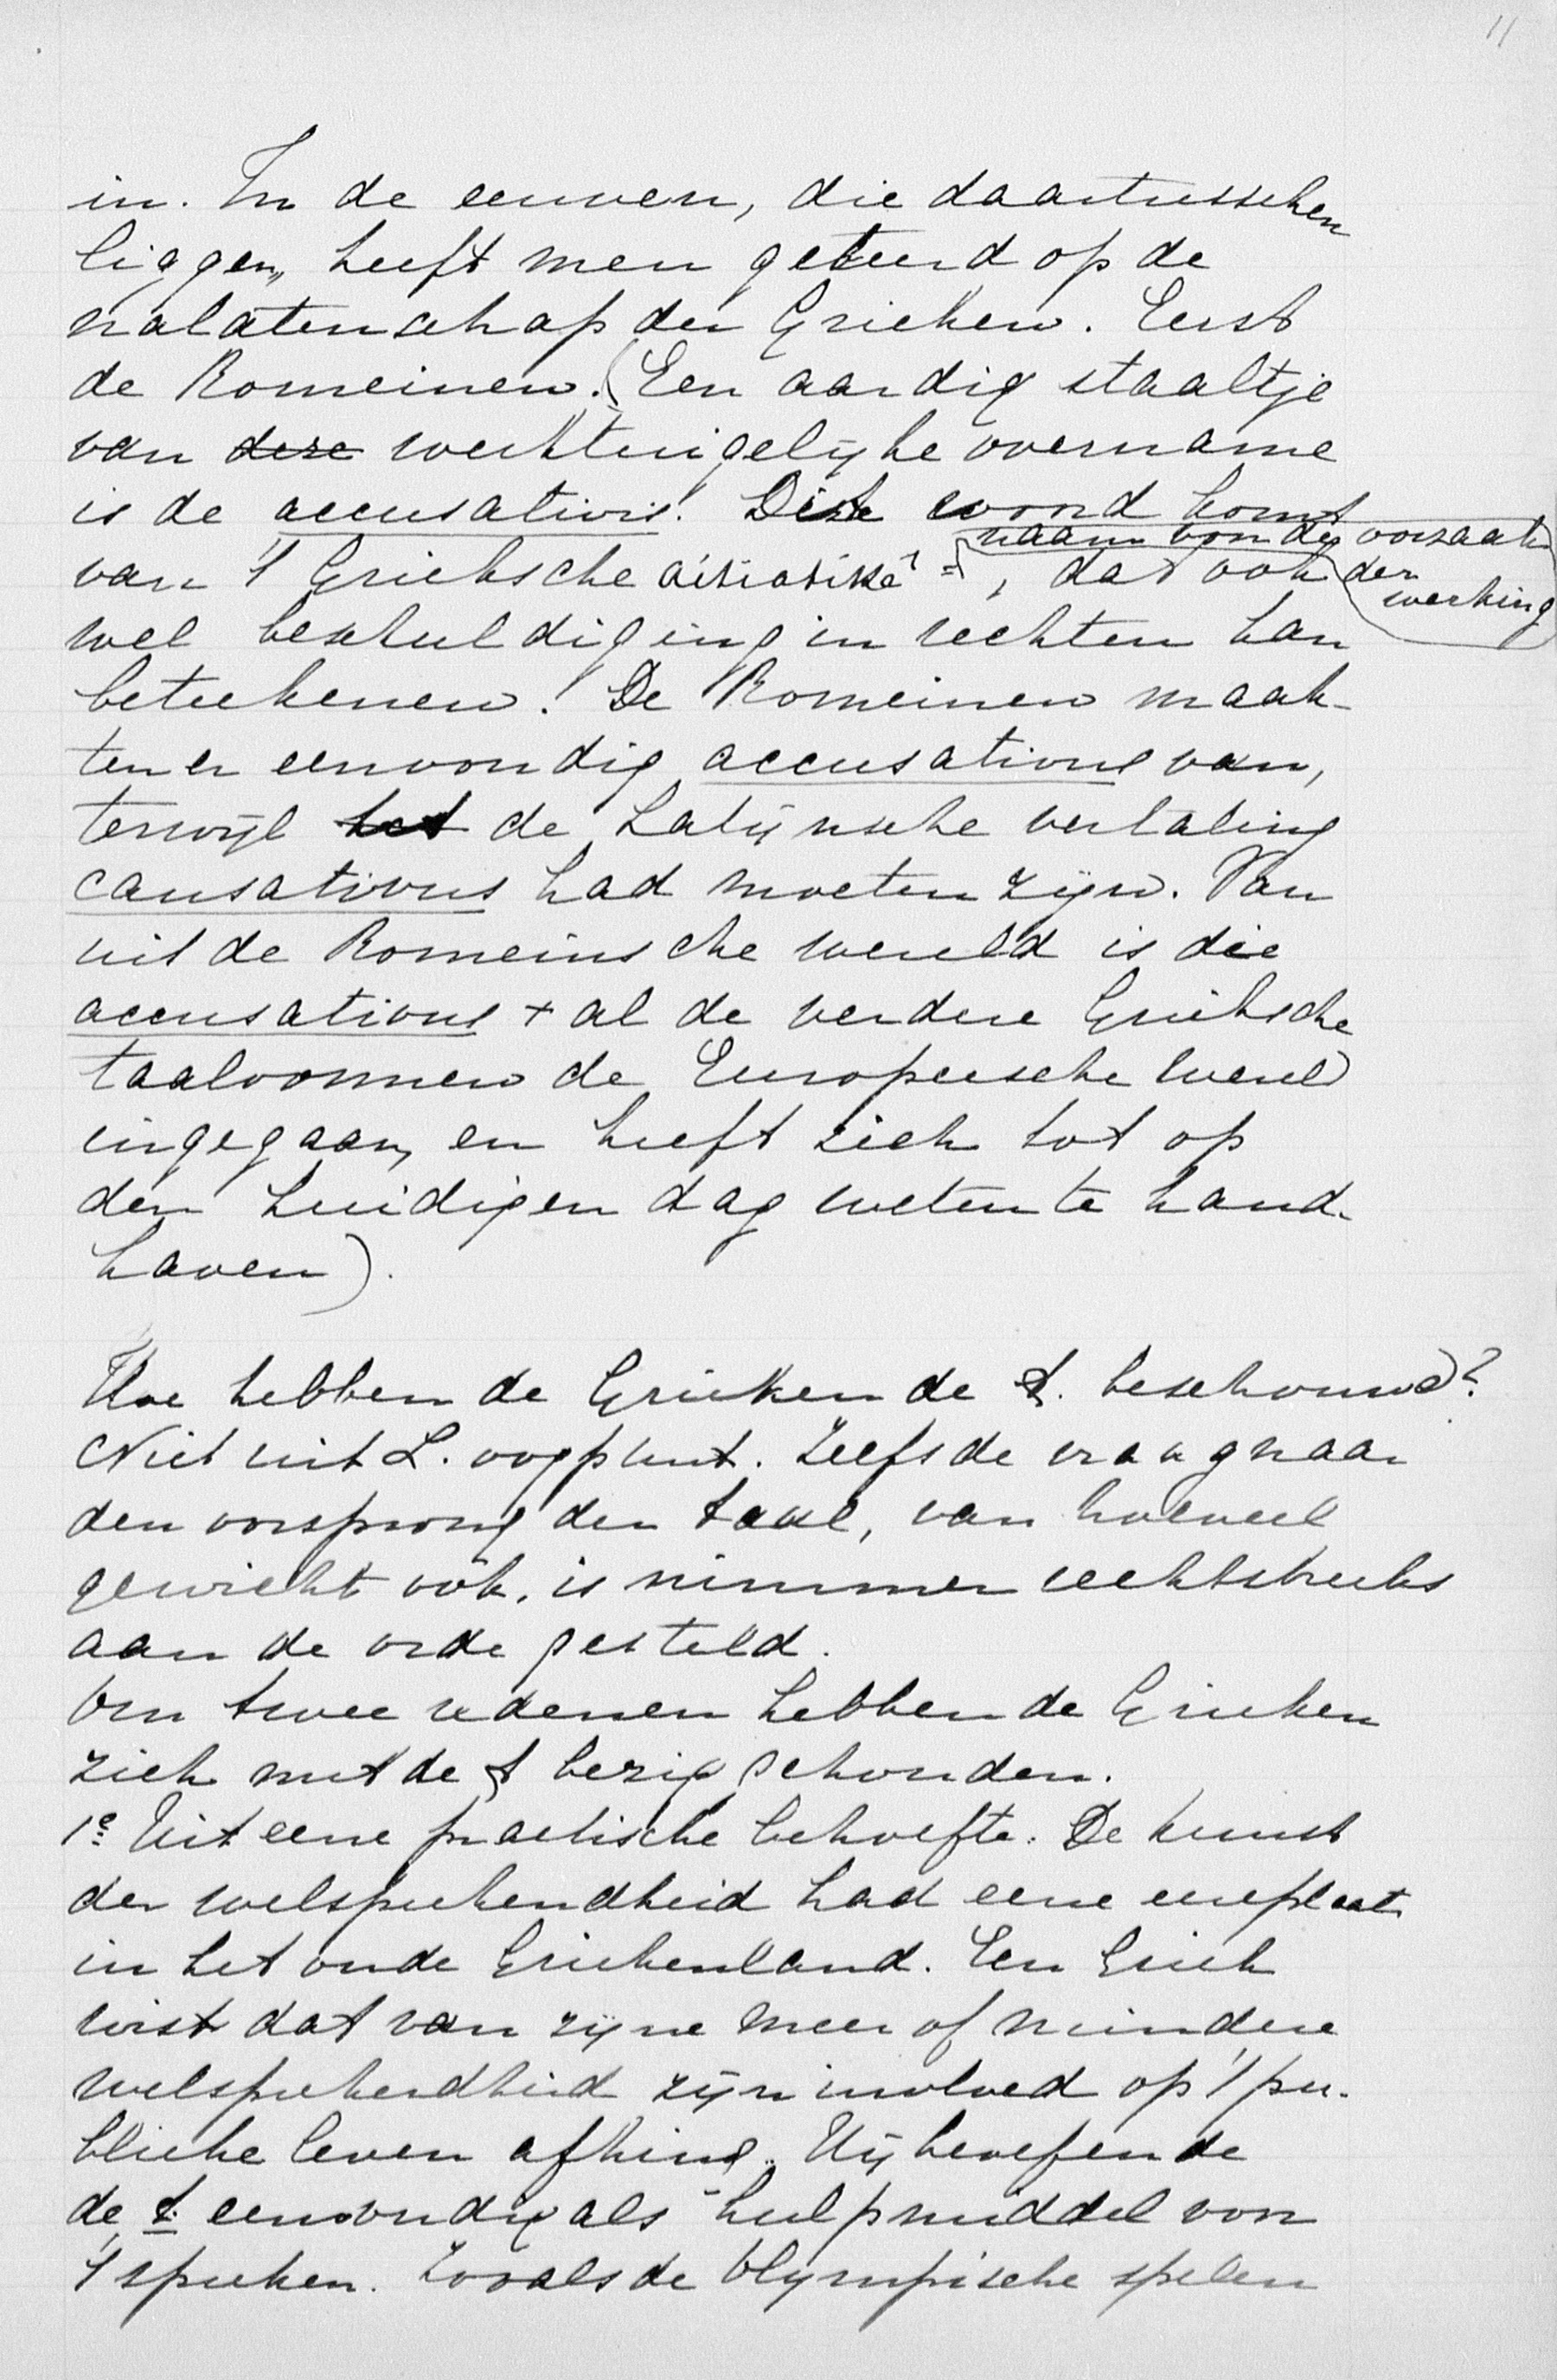 11
in. In de eeuwen, die daartusschen
liggen, heeft men geteerd op de
nalatenschap der Grieken. Eerst
de Romeinen. (Een aardig staaltje
van deze werktuigelijke overname
is de accusativus. Dit woord komt
van 't Grieksche αἰτιατική = naam van de oorzaak der werking, dat ook
wel beschuldiging in rechten kan
beteekenen! De Romeinen maak-
ten er eenvoudig accusativus van,
terwijl het de Latijnsche vertaling
causativus had moeten zijn. Van
uit de Romeinsche wereld is die
accusativus + al de verdere Grieksche
taalvormen de Europeesche wereld
ingegaan, en heeft zich tot op
den huidigen dag weten te hand-
haven).
Hoe hebben de Grieken de t. beschouwd?
Niet uit L. oogpunt. Zelfs de vraag naar
den oorsprong der taal, van hoeveel
gewicht ook, is nimmer rechtstreeks
aan de orde gesteld.
Om twee redenen hebben de Grieken
zich met de t bezig gehouden.
1e. Uit eene practische behoefte. De kunst
der welsprekendheid had eene eereplaats
in het oude Griekenland. Een Griek
wist dat van zijne meer of mindere
welsprekendheid zijn invloed op 't pu-
blieke leven afhing. Hij beoefende
de t. eenvoudig als hulpmiddel voor
't spreken. Zooals de Olympische spelen